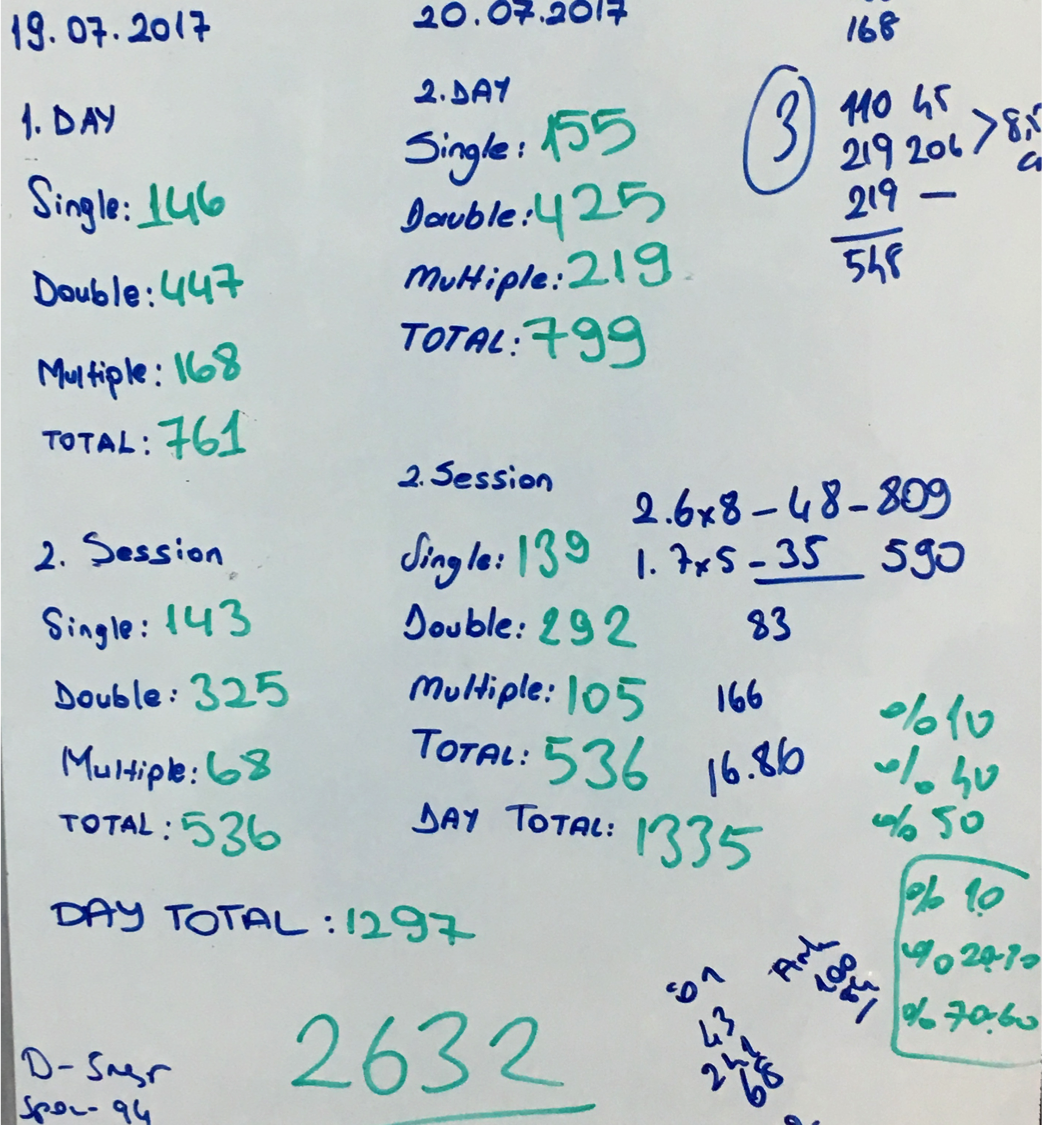 19.07.2017
1. DAY
Single: 146
Double: 447
Multiple: 168
TOTAL: 761
2. Session
Single: 143
Double: 325
Multiple: 68
TOTAL: 536
DAY TOTAL: 1297
20.07.2017
2. DAY
Single: 155
Double: 425
Multiple: 219
TOTAL: 799
2. Session
Single: 139
Double: 292
Multiple: 105
TOTAL: 536
DAY TOTAL: 1335
168
3
110 45
219 206 >
219 —
548
2. 6x8 - 48 - 809
1. 7x5 - 35 590
83
166
16.86
% 10
% 40
% 50
% 10
% 70.60
43
68
2632
94